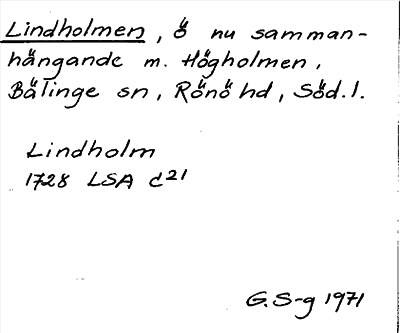 Lindholmen, ö nu samman-
hängande m. Högholmen,
Bälinge sn, Rönö hd, Söd.l.
Lindholm
1728 LSA C21
G.S-g 1971